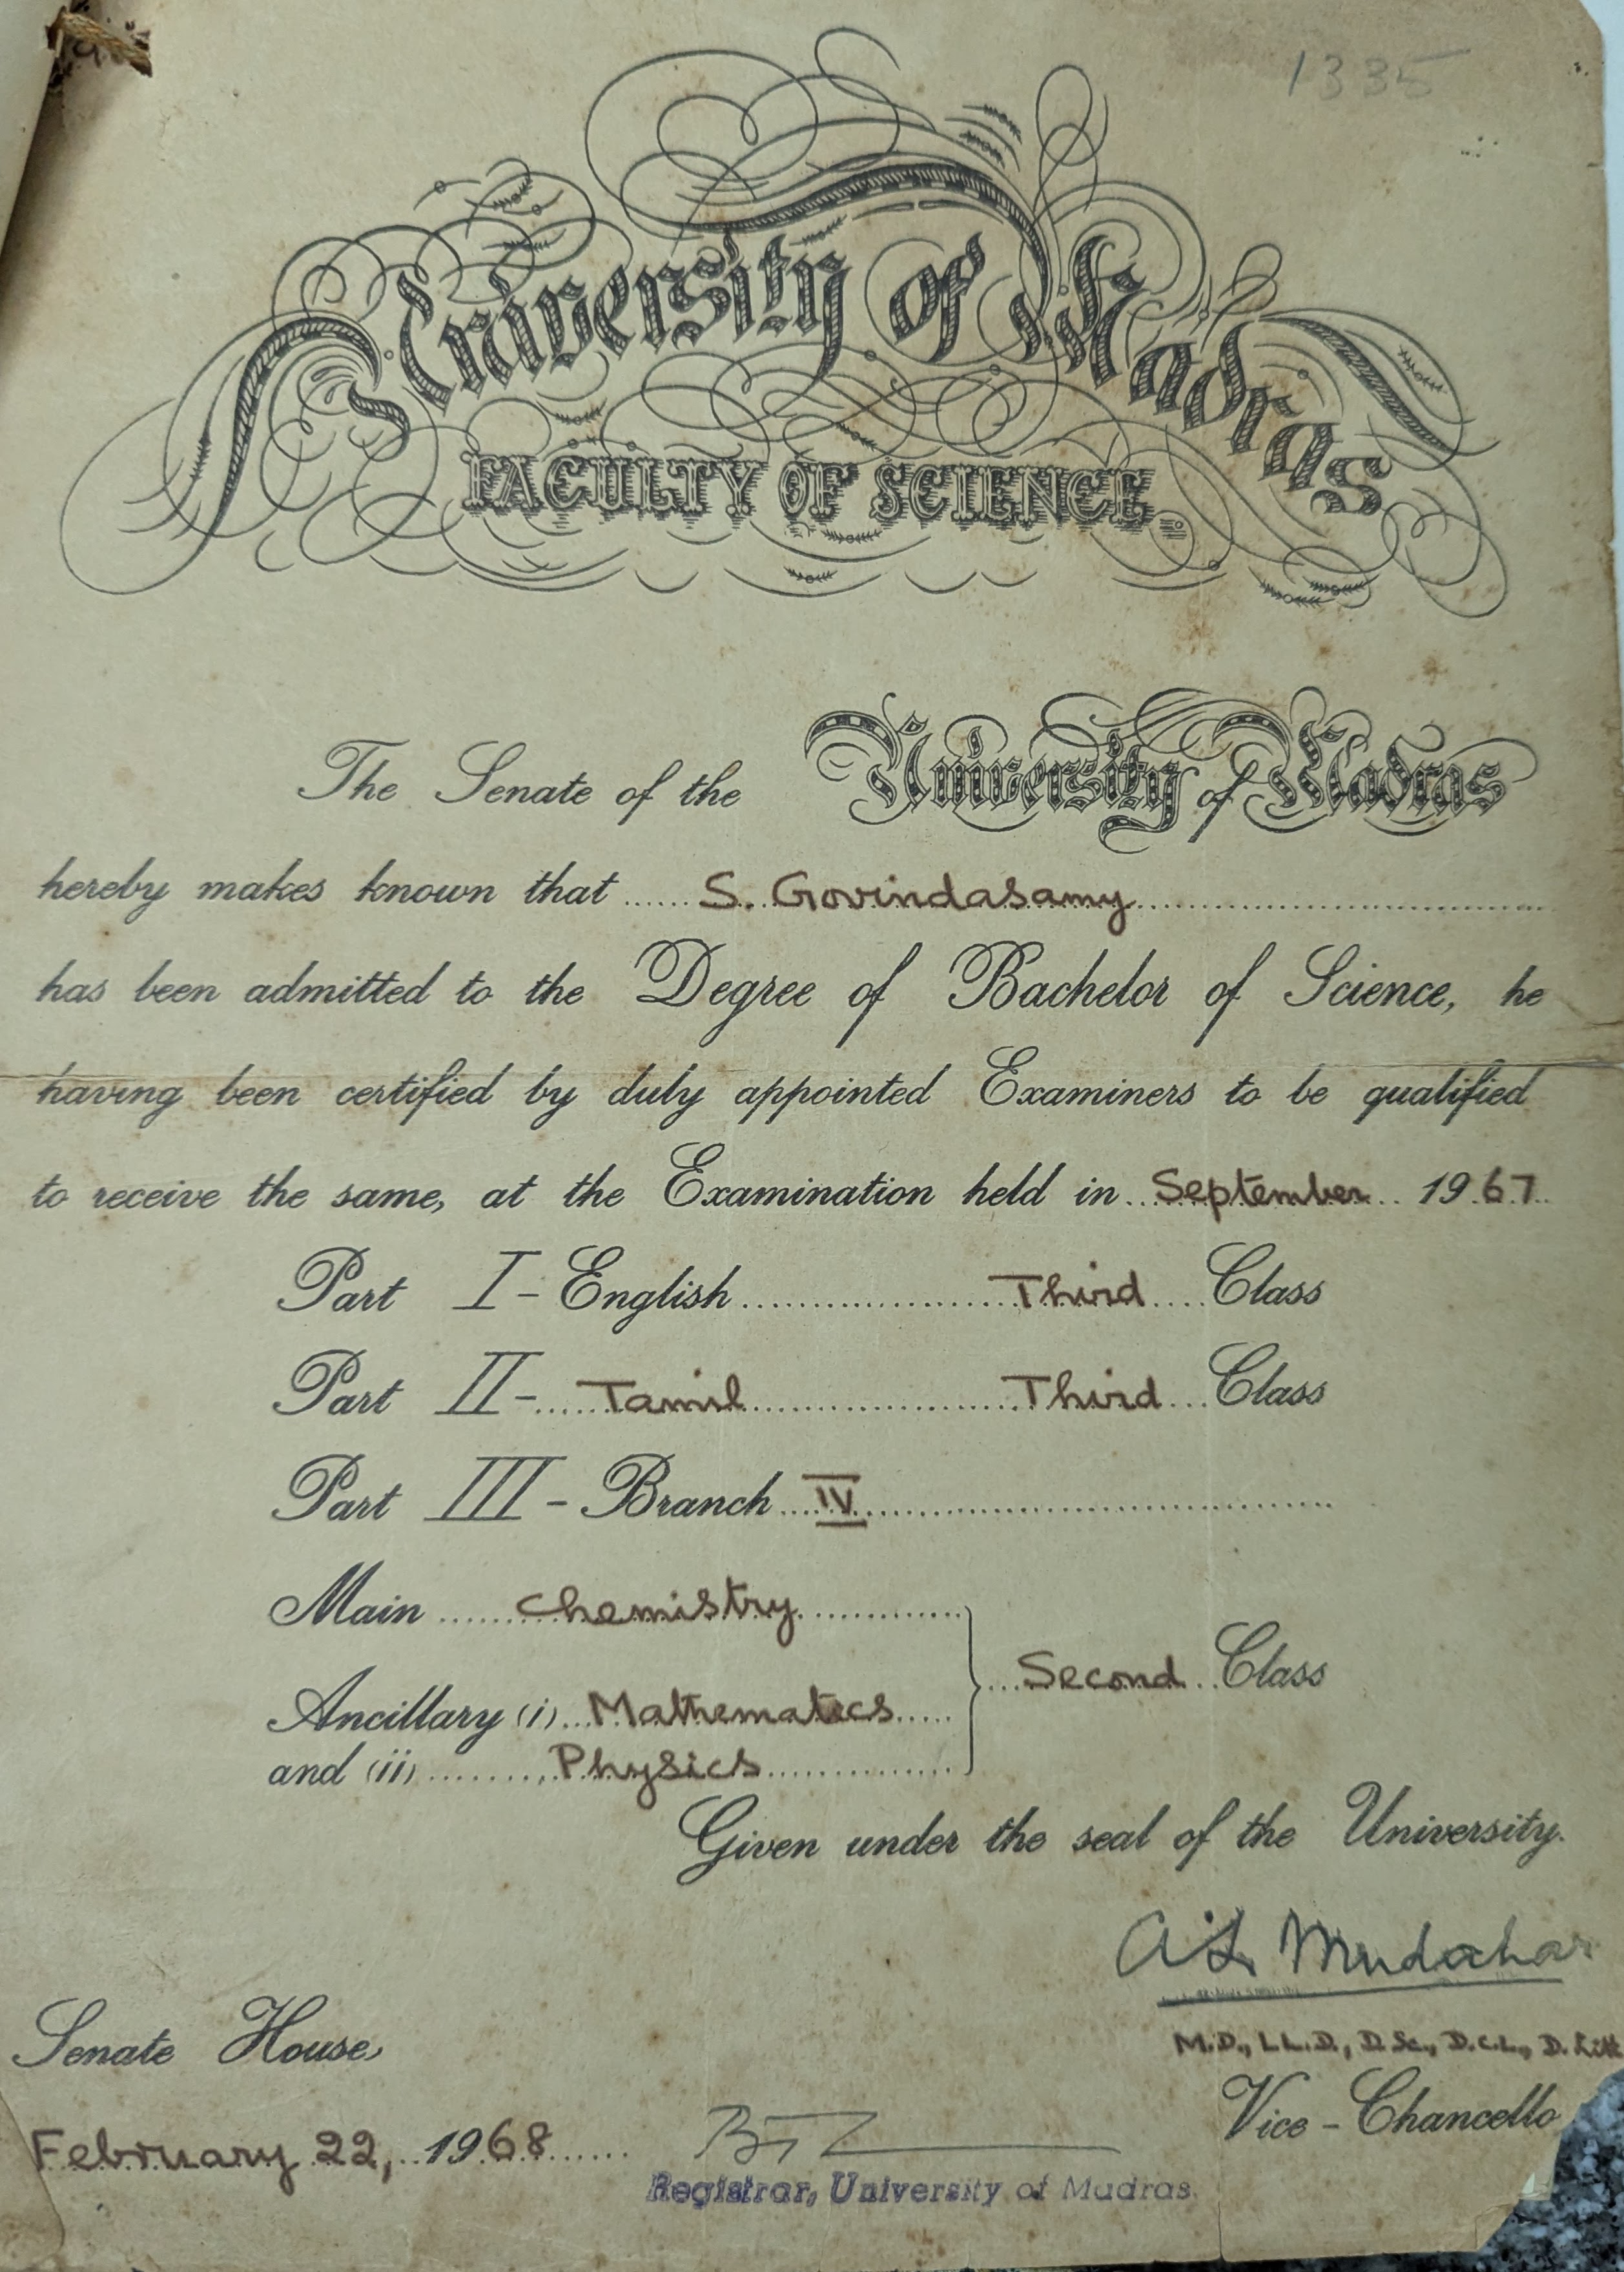 1335
University of Madras
FACULTY OF SCIENCE.
The Senate of the University of Madras
hereby makes known that S. Govindasamy
has been admitted to the Degree of Bachelor of Science, he
having been certified by duly appointed Examiners to be qualified
to receive the same, at the Examination held in September 1967
Part I - English Third Class
Part II - Tamil Third Class
Part III - Branch IV
Main Chemistry
Second Class
Ancillary (i) Mathematics
and (ii) Physics
Given under the seal of the University.
A. L. Mudaliar
M.D., LL.D., D.Sc., D.C.L., D.Litt
Senate House,
Vice-Chancello
February 22, 1968
Registrar, University of Madras.